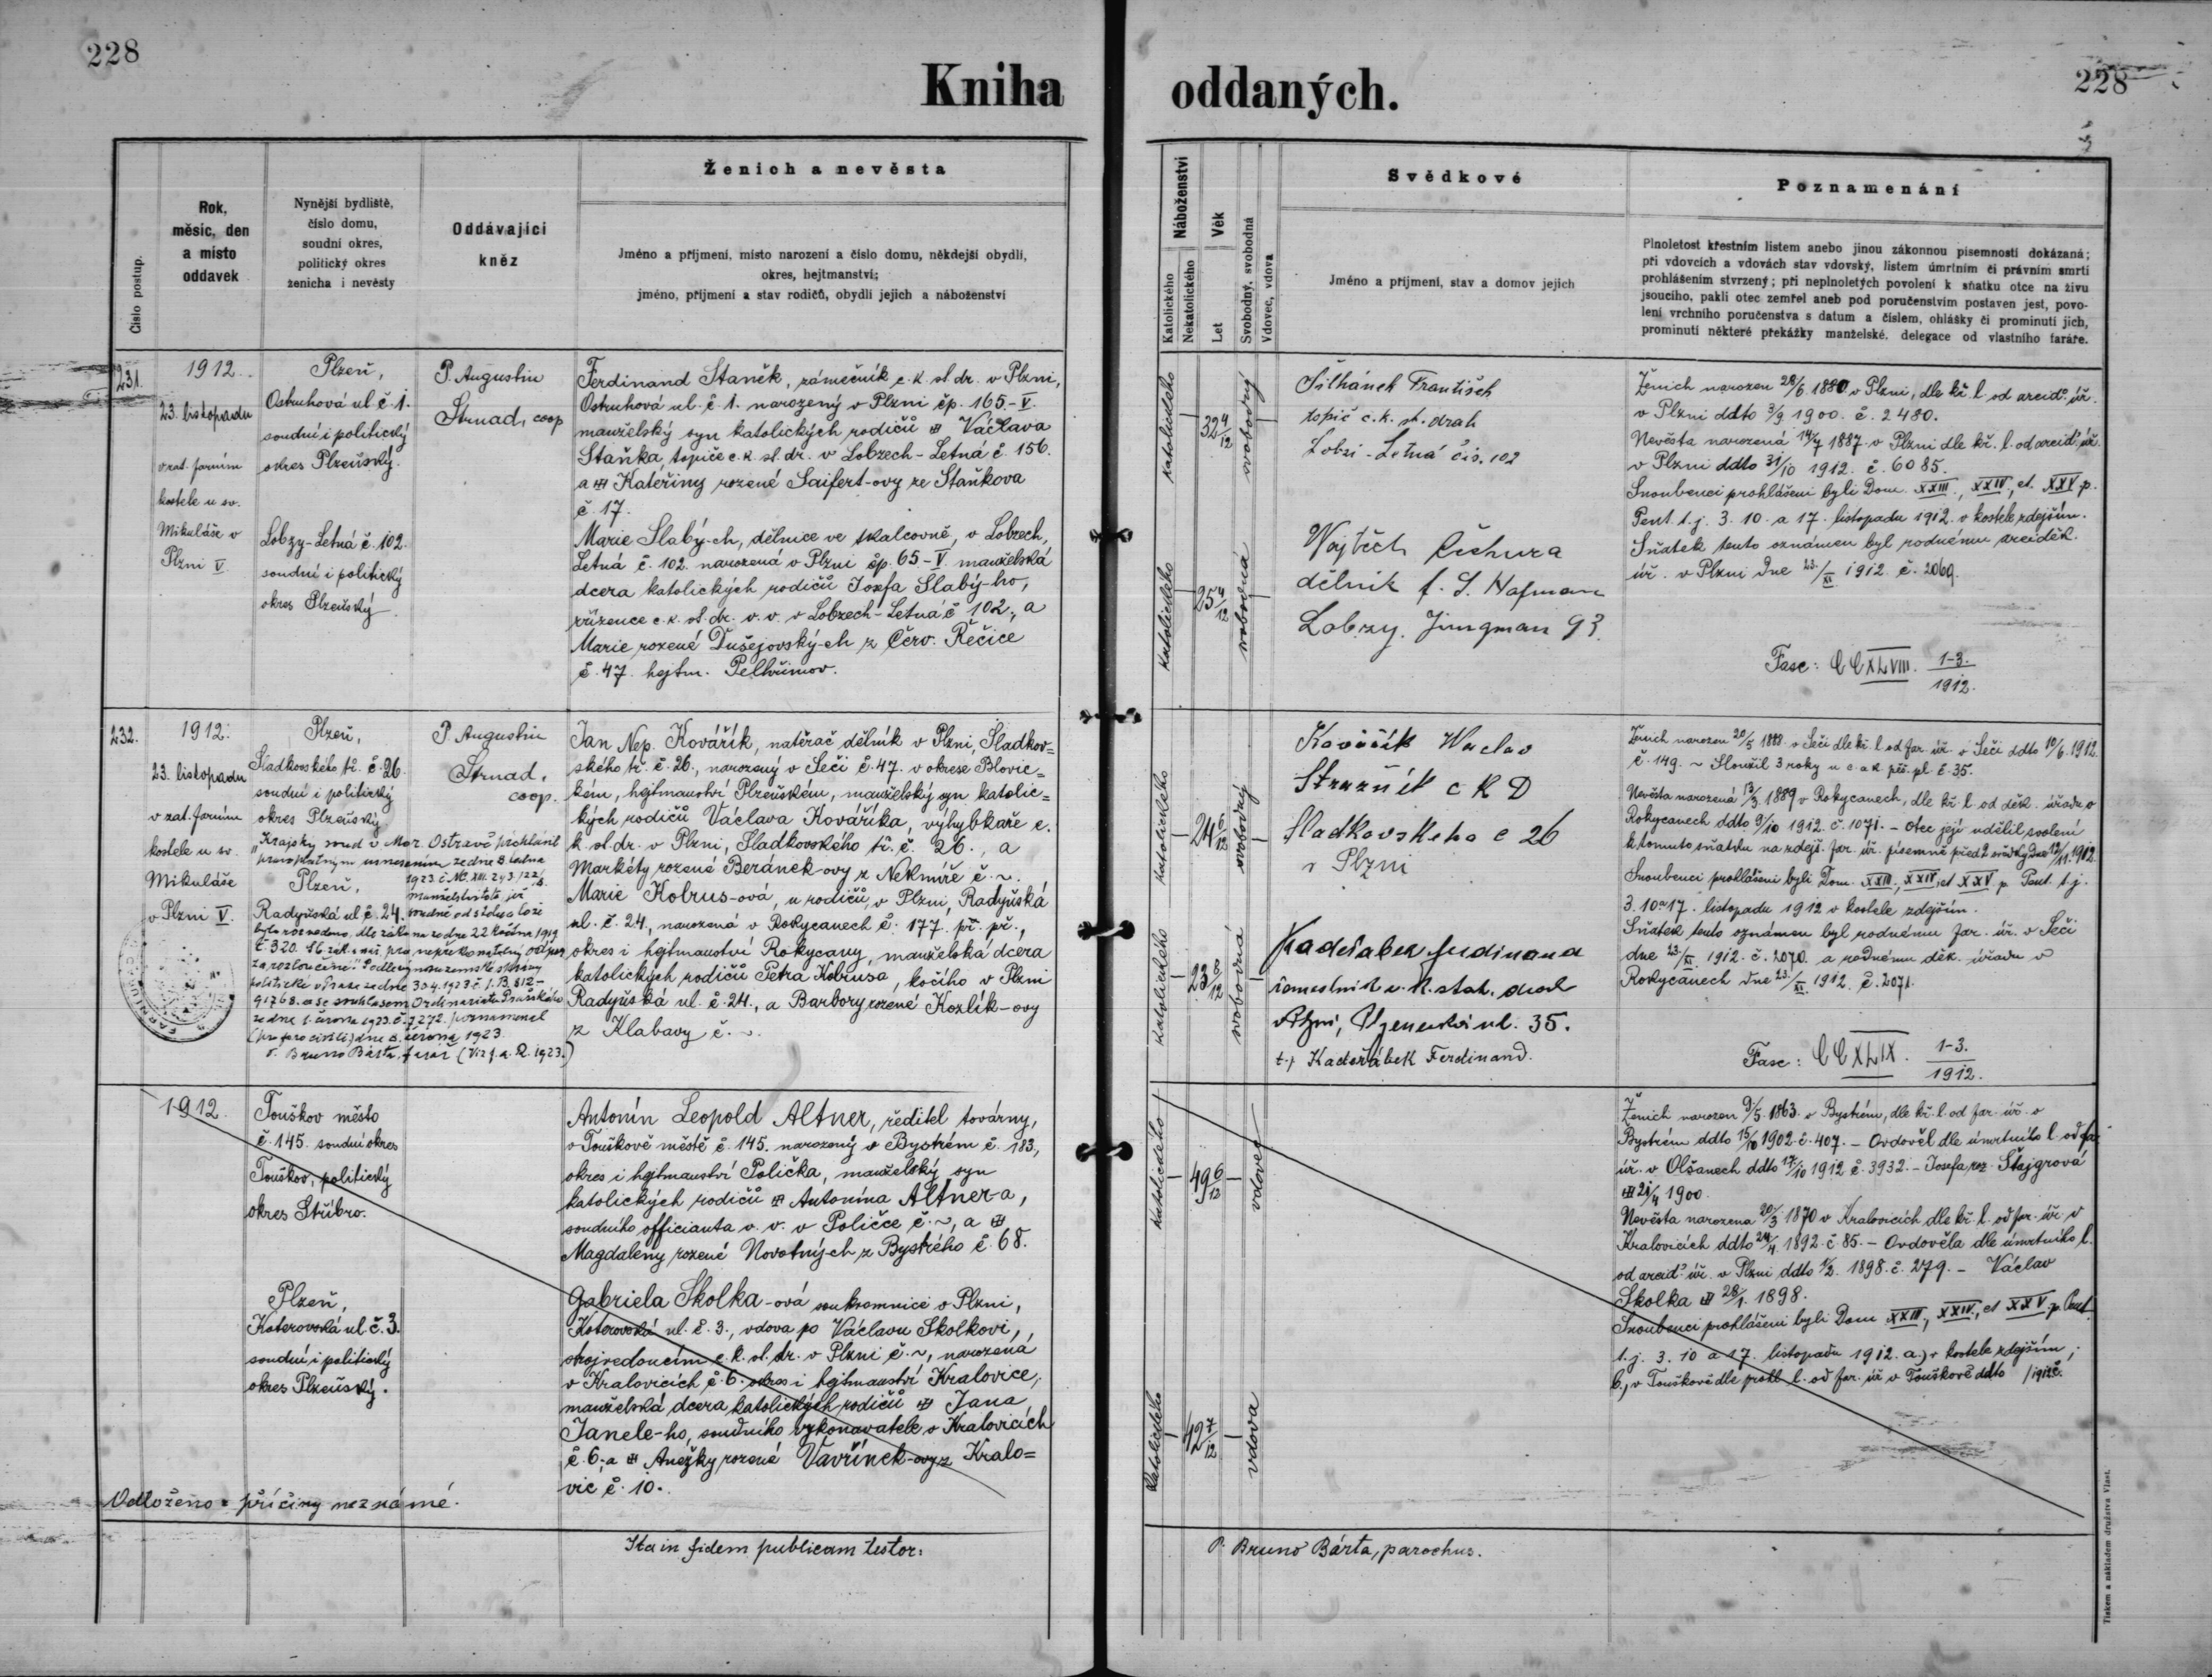 228
Kniha
Číslo postup.
Rok,
měsíc, den
a místo
oddavek
Nynější bydliště,
číslo domu,
soudní okres,
politický okres
ženicha i nevěsty
Oddávající
kněz
Ženich a nevěsta
Jméno a příjmení, místo narození a číslo domu, někdejší obydlí,
okres, hejtmanství;
jméno, příjmení a stav rodičů, obydlí jejich a náboženství
231.
1912.
23. listopadu
v zat. farním
kostele u sv.
Mikuláše v
Plzni V.
Plzeň,
Ostruhová ul č. 1.
soudní i politický
okres Plzeňský.
Lobzy-Letná č. 102.
soudní i politický
okres Plzeňský.
P. Augustin
Strnad, coop
Ferdinand Staněk, zámečník c. k. st. dr. v Plzni,
Ostruhová ul. č 1. narozený v Plzni čp. 165.-V.
manželský syn katolických rodičů Václava
Staňka, topiče c. k. st. dr. v Lobzech-Letná č. 156.
a Kateřiny rozené Saifert-ovy ze Staňkova
č. 17.
Marie Slabý-ch, dělnice ve skalcovně, v Lobzech,
Letná č. 102. narozená v Plzni čp. 65-V. manželská
dcera katolických rodičů Josefa Slabý-ho,
zřízence c. k. st. dr. v. v. v Lobzech-Letná č 102., a
Marie rozené Dušejovský-ch z Červ. Řečice
č. 47. hejtm. Pelhřimov.
232.
1912.
23. listopadu
v zat. farním
kostele u sv.
Mikuláše
v Plzni V.
Plzeň,
Sladkovského tř. č. 26.
soudní i politický
okres Plzeňský
Plzeň,
Radyňská ul č. 24.
P. Augustin
Strnad,
coop.
"Krajský soud v Mor. Ostravě prohlásil
pravoplatným usnesením ze dne 8. ledna
1923
manželství toto již
soudně od stolu a lože
bylo rozvedeno, dle zákona ze dne 22 května 1919
č 320. Sb. zák. a nař. pro nepřekonatelný odpor
za rozloučené." Podle
politické
ze dne 1. února 1923. č. 7272. poznamenal
(pro foro civili) dne 8. února 1923.
P. Bruno Bárta, farář (Viz f. a. R. 1923.)
Jan Nep. Kovářík, natěrač dělník v Plzni, Sladkov=
ského tř. č. 26., narozený v Seči č. 47. v okrese Blovic=
kém, hejtmanství Plzeňském, manželský syn katolic=
kých rodičů Václava Kováříka, výhybkaře c.
k. st. dr. v Plzni, Sladkovského tř. č. 26., a
Markéty rozené Beránek-ovy z Nekmíře č. ~.
Marie Kobrus-ová, u rodičů, v Plzni, Radyňská
ul. č. 24., narozená v Rokycanech č. 177. př. př.,
okres i hejtmanství Rokycany, manželská dcera
katolických rodičů Petra Kobrusa, kočího v Plzni
Radyňská ul. č. 24., a Barbory rozené Kozlík-ovy
z Klabavy č. ~.
1912.
Touškov město
č. 145. soudní okres
Touškov, politický
okres Stříbro.
Plzeň,
Koterovská ul. č. 3.
soudní i politický
okres Plzeňský.
Antonín Leopold Altner, ředitel továrny,
v Touškově městě č. 145. narozený v Bystrém č. 183,
okres i hejtmanství Polička, manželský syn
katolických rodičů Antonína Altner-a,
soudního officianta v. v. v Poličce č. ~, a
Magdaleny rozené Novotných z Bystrého č. 68.
Gabriela Skolka-ová soukromnice v Plzni,
Koterovská ul. č. 3., vdova po Václavu Skolkovi,
strojvedoucím c. k. st. dr. v Plzni č. ~, narozená
v Kralovicích č. 6. okres i hejtmanství Kralovice,
manželská dcera katolických rodičů Jana
Janele-ho, soudního vykonavatele v Kralovicích
č. 6., a Anežky rozené Vavřínek-ovy z Kralo=
vic č. 10.
Odloženo = příčiny neznámé.
Ita in fidem publicam testor:
228
oddaných.
Náboženství
Katolického
Nekatolického
Věk
Let
Svobodný, svobodná
Vdovec, vdova
Svědkové
Jméno a příjmení, stav a domov jejich
Poznamenání
Plnoletost křestním listem anebo jinou zákonnou písemností dokázaná;
při vdovcích a vdovách stav vdovský, listem úmrtním či právním smrti
prohlášením stvrzený; při neplnoletých povolení k sňatku otce na živu
jsoucího, pakli otec zemřel aneb pod poručenstvím postaven jest, povo-
lení vrchního poručenstva s datum a číslem, ohlášky či prominutí jich,
prominutí některé překážky manželské, delegace od vlastního faráře.
katolického
32 4/12
svobodný
katolického
25 4/12
svobodná
Šilhánek František
topič c. k. st. drah
Lobzi-Letná čís. 102
Wojtěch Čchura
dělník f. S. Hafman
Lobzy. Jungman 93.
Ženich narozen 28/6 1880 v Plzni, dle kř. l. od arcid. úř.
v Plzni ddto 3/9 1900. č. 2480.
Nevěsta narozena 14/7 1887 v Plzni dle kř. l. od arcid. úř.
v Plzni ddto 31/10 1912. č. 6085.
Snoubenci prohlášeni byli Dom. XXIII., XXIV., et XXV p.
Pent. t. j. 3. 10. a 17. listopadu 1912. v kostele zdejším.
Sňatek tento oznámen byl rodnému arciděk.
úř. v Plzni dne 23./XI 1912. č. 2069.
Fasc: CCXLVIII. 1-3./1912.
katolického
24 6/12
svobodný
katolického
23 8/12
svobodná
Kovářík Waclav
Strážník c K D
Sladkovskeho c 26
v Plzni
Kadeřabek Ferdinand
Plzni, ul. 35.
t. j. Kadeřábek Ferdinand.
Ženich narozen 20/5 1888 v Seči dle kř. l. od far. úř. v Seči ddto 10/6. 1912.
č. 149. ~ Sloužil 3 roky u c. a k. pěš. pl. č. 35.
Nevěsta narozená 13/3. 1889 v Rokycanech, dle kř. l. od děk. úřadu v
Rokycanech ddto 9/10 1912. č. 1071. - Otec její udělil svolení
k tomuto sňatku na zdejš. far. úř. písemně před 2 svědky dne 12/11. 1912.
Snoubenci prohlášeni byli Dom. XXIII, XXIV, et XXV p. Pent. t. j.
3. 10 a 17. listopadu 1912 v kostele zdejším.
Sňatek tento oznámen byl rodnému far. úř. v Seči
dne 23/XI. 1912. č. 2070. a rodnému děk. úřadu v
Rokycanech dne 23./XI. 1912. č. 2071.
Fasc: CCXLIX. 1-3./1912.
katolického
49 6/12
vdovec
katolického
42 7/12
vdova
Ženich narozen 9/5. 1863. v Bystrém, dle kř. l. od far. úř. v
Bystrém ddto 15/10 1902. č. 407. - Ovdověl dle úmrtního l. od far.
úř. v Olšanech ddto 17/10 1912 č. 3932. - Josefa roz. Štajgrová
21/4 1900.
Nevěsta narozena 20/3 1870 v Kralovicích dle kř. l. od far. úř. v
Kralovicích ddto 24/4. 1892. č 85. - Ovdověla dle úmrtního l.
od arcid. úř. v Plzni ddto 1/2. 1898. č. 279. - Václav
Skolka 28/1. 1898.
Snoubenci prohlášeni byli Dom XXIII., XXIV., et XXV. p. Pent.
t. j. 3. 10 a 17. listopadu 1912. a.) v kostele zdejším;
b., v Touškově dle prohl. l. od far. úř. v Touškově ddto / 1912 č.
P. Bruno Bárta, parochus.
Tiskem a nákladem družstva Vlast.